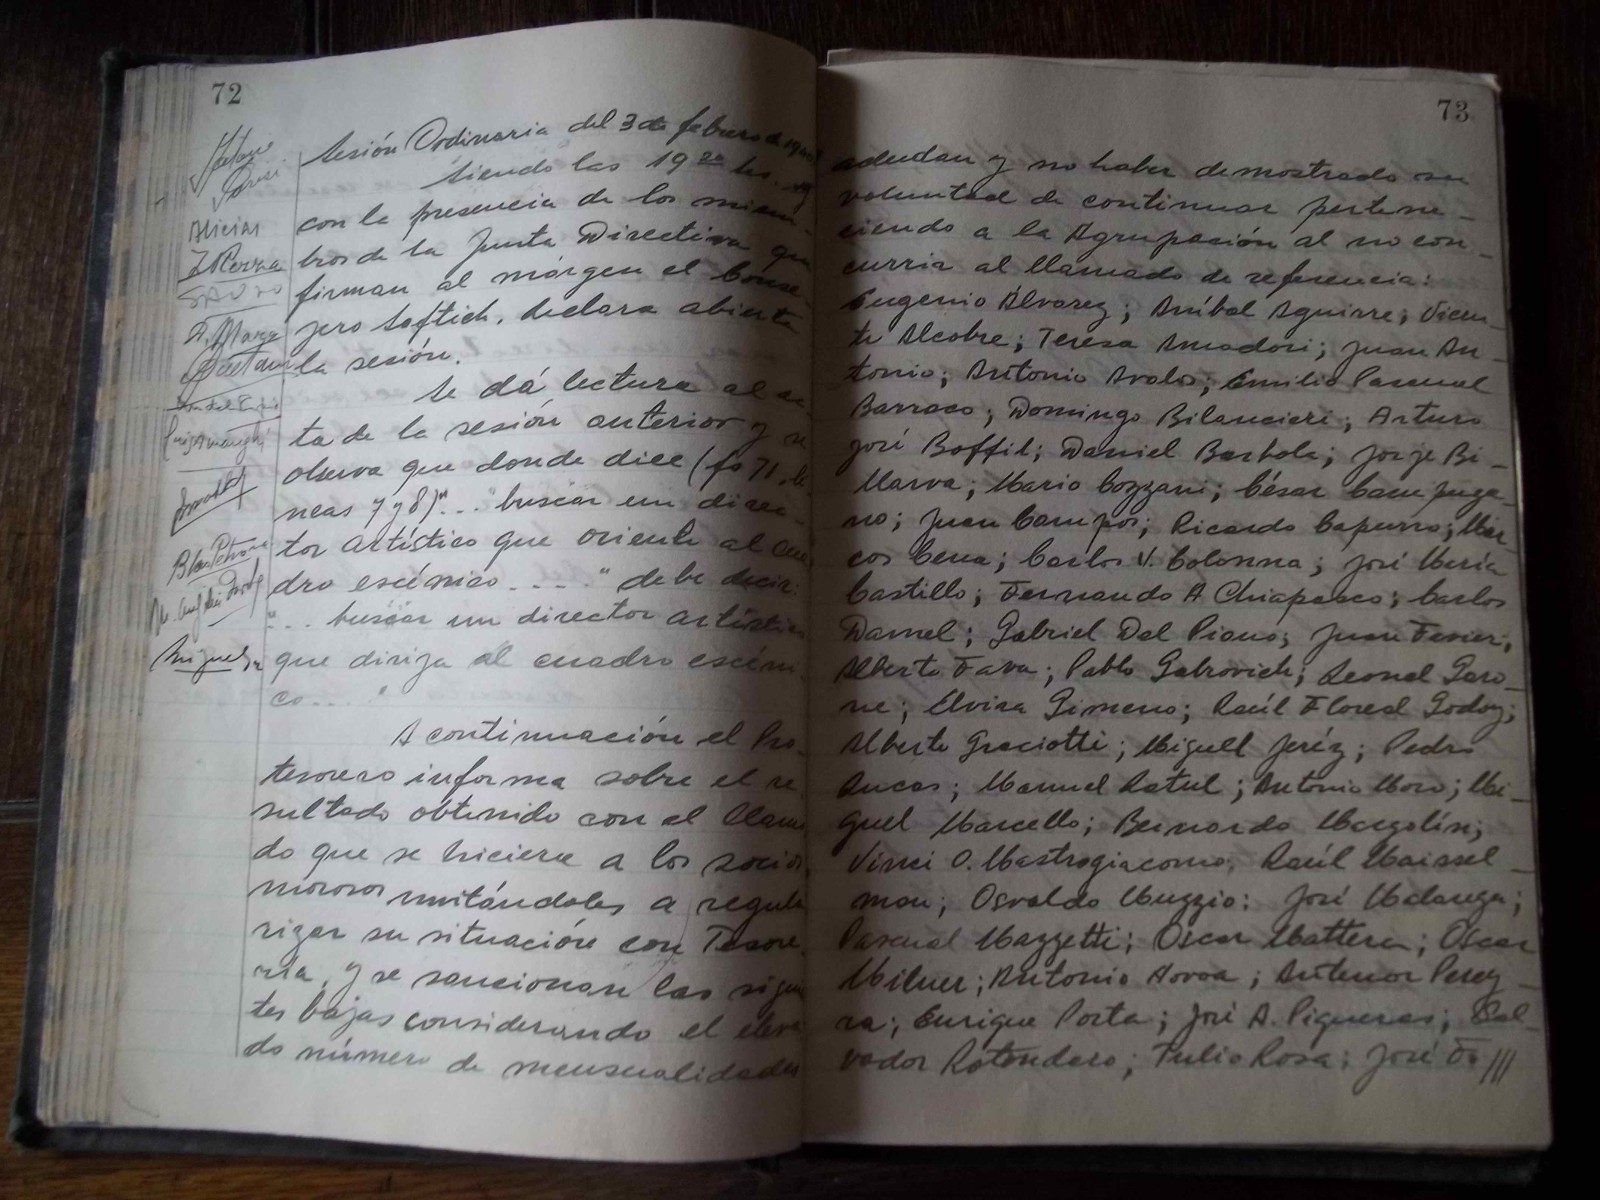 72
Sesión Ordinaria del 3 de febrero de 1940
Siendo las 19 20 hs. y
con la presencia de los miem-
bros de la Junta Directiva que
firman al márgen el Conse-
jero Softich, declara abierta
la sesión.
Se dá lectura al ac-
ta de la sesión anterior y se
observa que donde dice (fo 71, lí-
neas 7 y 8) "... buscar un direc-
tor artístico que oriente al cua-
dro escénico . . . ." debe decir:
"... buscar un director artístico
que dirija al cuadro escéni-
co.... "
A continuación el Pro-
tesorero informa sobre el re
sultado obtenido con el llama
do que se hiciera a los socios
morosos invitándoles a regula
rizar su situación con Tesore-
ría, y se sancionan las siguien
tes bajas considerando el eleva
do número de mensualidades
Alicias
Blas Petrone
Miguel
73
adeudan y no haber demostrado su
voluntad de continuar pertene-
ciendo a la Agrupación al no con-
currir al llamado de referencia:
Eugenio Álvarez; Aníbal Aguirre; Vicen-
te Alcobre; Teresa Amadori; Juan An-
tonio; Antonio Avalos; Emilio Pascual
Barraco; Domingo Bilancieri; Arturo
José Boffil; Daniel Barbola; Jorje Bi-
Marva; Mario Cozzani; César Campuga-
no; Juan Campos; Ricardo Capurro; Mar-
cos Cena; Carlos V. Colonna; José María
Castillo; Fernando A Chiapasco; Carlos
Darnel; Gabriel Del Piano; Juan Favier;
Alberto Fava; Pablo Gabrovich; Leonel Garo-
ne; Elvira Gimeno; Raúl Floreal Godoy;
Alberto Graciotti; Miguel Jeréz; Pedro
Lucas; Manuel Latul; Antonio Moro; Mi-
guel Marcello; Bernardo Margolín;
Vinci O. Mastrogiacomo; Raúl Maissel-
man; Osvaldo Muzzio; José Madariaga;
Pascual Mazzetti; Oscar Mattera; Oscar
Milner; Antonio Novoa; Antenor Perey-
ra; Enrique Porta; José A. Piqueras; Sal-
vador Rotondaro; Tulio Rosa; José Fo ///